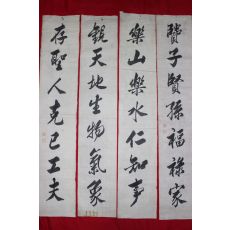 子賢孫福祿家
樂山樂水仁知事
觀天地生物氣象
存聖人克己工夫